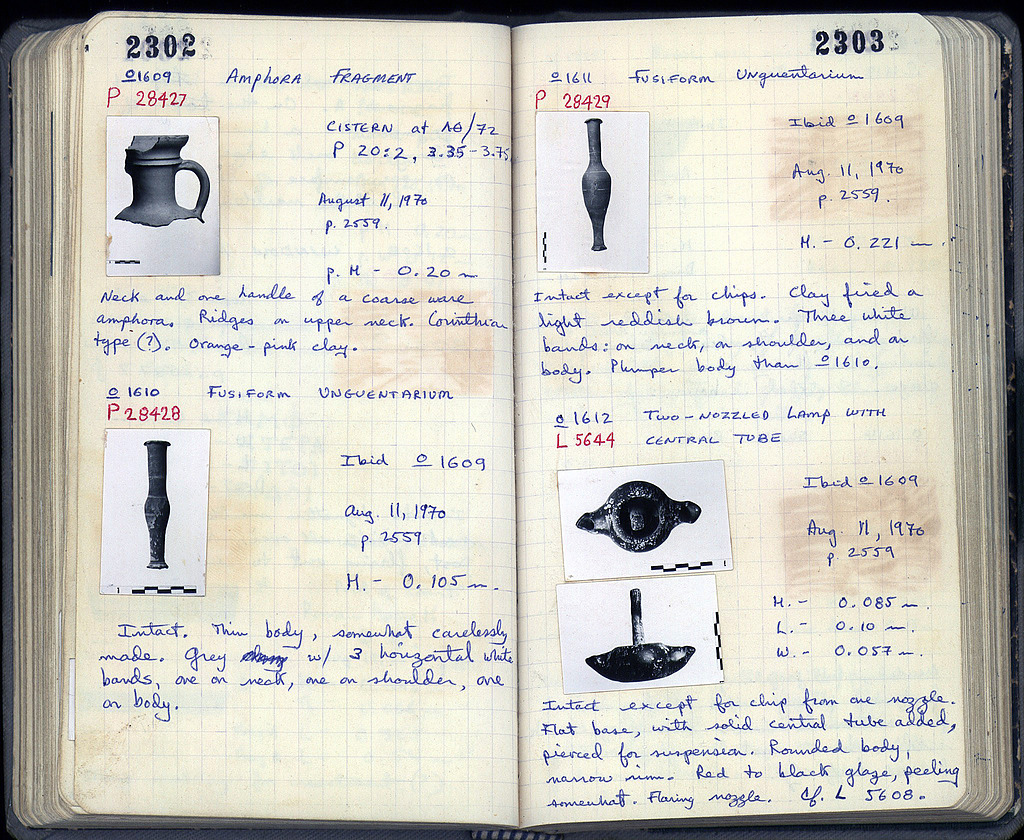 2302
o1609 AMPHORA FRAGMENT
P 28427
CISTERN at ΛΘ/72
P 20:2, 3.35-3.75
August 11, 1970
p. 2559.
p. H - 0.20 m
Neck and one handle of a coarse ware
amphora. Ridges on upper neck. Corinthian
type (?). Orange-pink clay.
o1610 FUSIFORM UNGUENTARIUM
P 28428
Ibid o1609
Aug. 11, 1970
p. 2559
H. - 0.105 m.
Intact. Thin body, somewhat carelessly
made. Grey w/ 3 horizontal white
bands, one on neck, one on shoulder, one
on body.
2303
o1611 FUSIFORM UNGUENTARIUM
P 28429
Ibid o1609
Aug. 11, 1970
p. 2559.
H. - 0.221 m.
Intact except for chips. Clay fired a
light reddish brown. Three white
bands: on neck, on shoulder, and on
body. Plumper body than o1610.
o1612 TWO-NOZZLED LAMP WITH
L 5644 CENTRAL TUBE
Ibid o1609
Aug. 11, 1970
p. 2559
H. - 0.085 m.
L. - 0.10 m.
W. - 0.057 m.
Intact except for chip from one nozzle.
Flat base, with solid central tube added,
pierced for suspension. Rounded body,
narrow rim. Red to black glaze, peeling
somewhat. Flaring nozzle. Cf. L 5608.